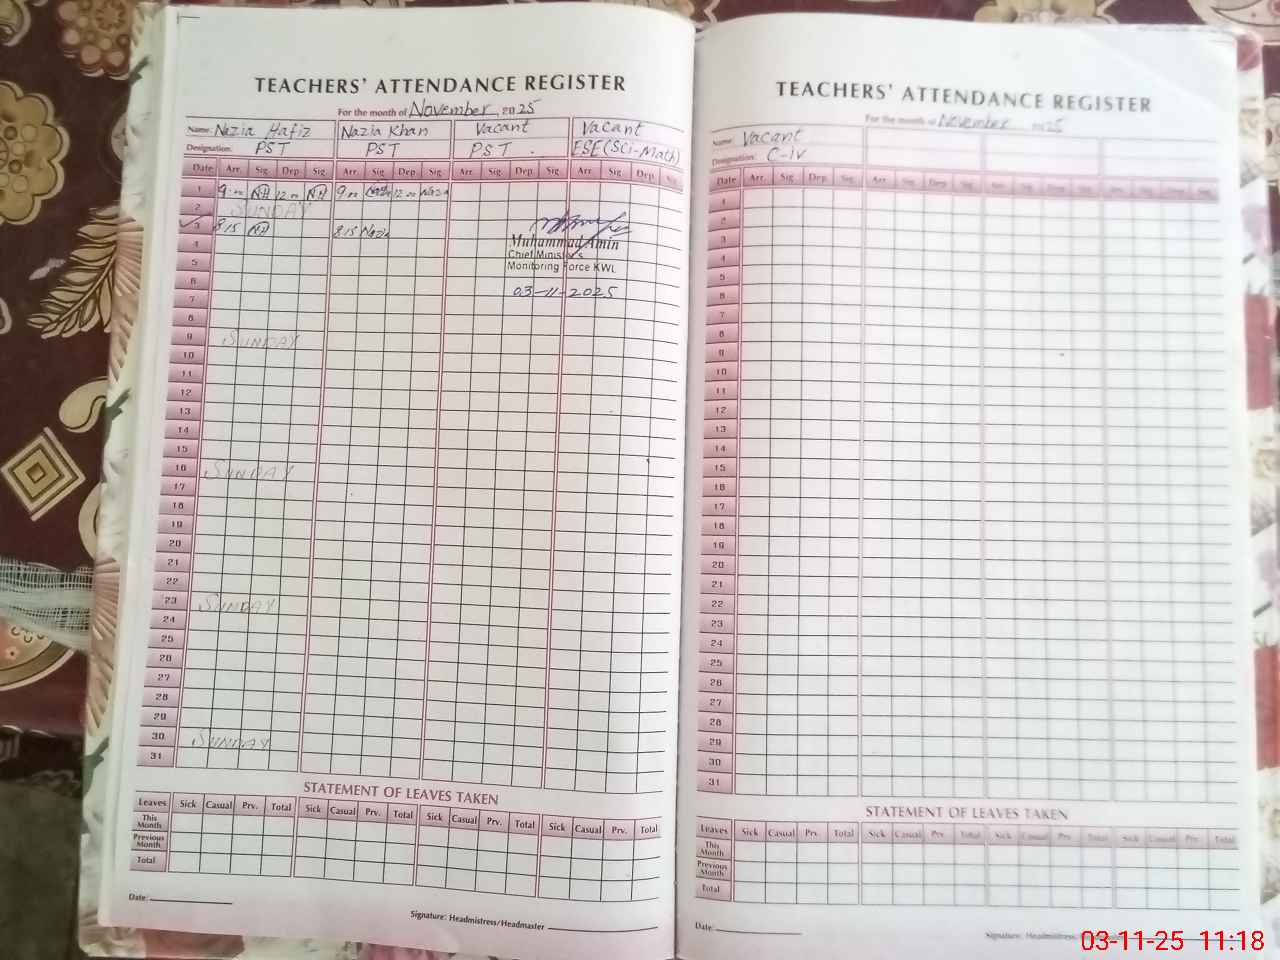 TEACHERS' ATTENDANCE REGISTER
For the month of November 2025
Name: Nazia Hafiz Nazia Khan Vacant Vacant
Designation: PST PST PST. ESE (Sci-Math)
Date Arr. Sig. Dep. Sig. Arr. Sig. Dep. Sig. Arr. Sig. Dep. Sig. Arr. Sig. Dep. Sig.
1 9:00 NH 12:00 NH 9:00 Nazia 12:00 Nazia
2 SUNDAY
3 8:15 NH 8:15 Nazia
4
5
6
7
8
9 SUNDAY
10
11
12
13
14
15
16 SUNDAY
17
18
19
20
21
22
23 SUNDAY
24
25
26
27
28
29
30 SUNDAY
31
Muhammad Amin
Chief Minister's
Monitoring Force KWL
03-11-2025
STATEMENT OF LEAVES TAKEN
Leaves Sick Casual Prv. Total Sick Casual Prv. Total Sick Casual Prv. Total Sick Casual Prv. Total
This Month
Previous Month
Total
Date:
Signature: Headmistress/Headmaster
TEACHERS' ATTENDANCE REGISTER
For the month of November 2025
Name: Vacant
Designation: C-iv
Date Arr. Sig. Dep. Sig. Arr. Sig. Dep. Sig. Arr. Sig. Dep. Sig. Arr. Sig. Dep. Sig.
1
2
3
4
5
6
7
8
9
10
11
12
13
14
15
16
17
18
19
20
21
22
23
24
25
26
27
28
29
30
31
STATEMENT OF LEAVES TAKEN
Leaves Sick Casual Prv. Total Sick Casual Prv. Total Sick Casual Prv. Total Sick Casual Prv. Total
This Month
Previous Month
Total
Date:
Signature: Headmistress
03-11-25 11:18